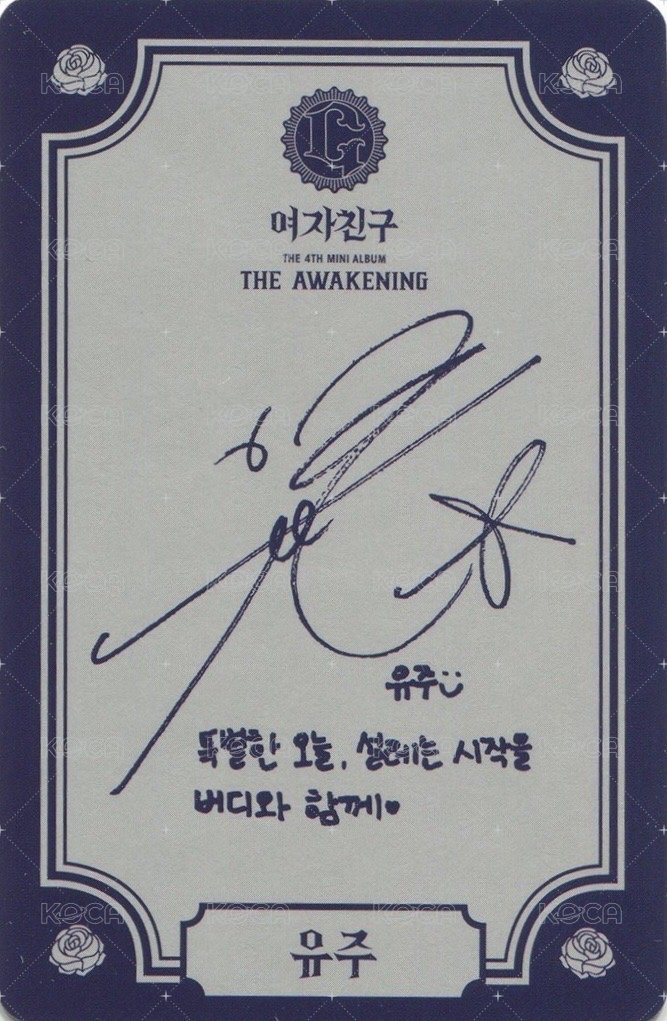 여자친구
THE 4TH MINI ALBUM
THE AWAKENING
유주
특별한 오늘, 설레는 시작을
버디와 함께♥
유주
KOCA